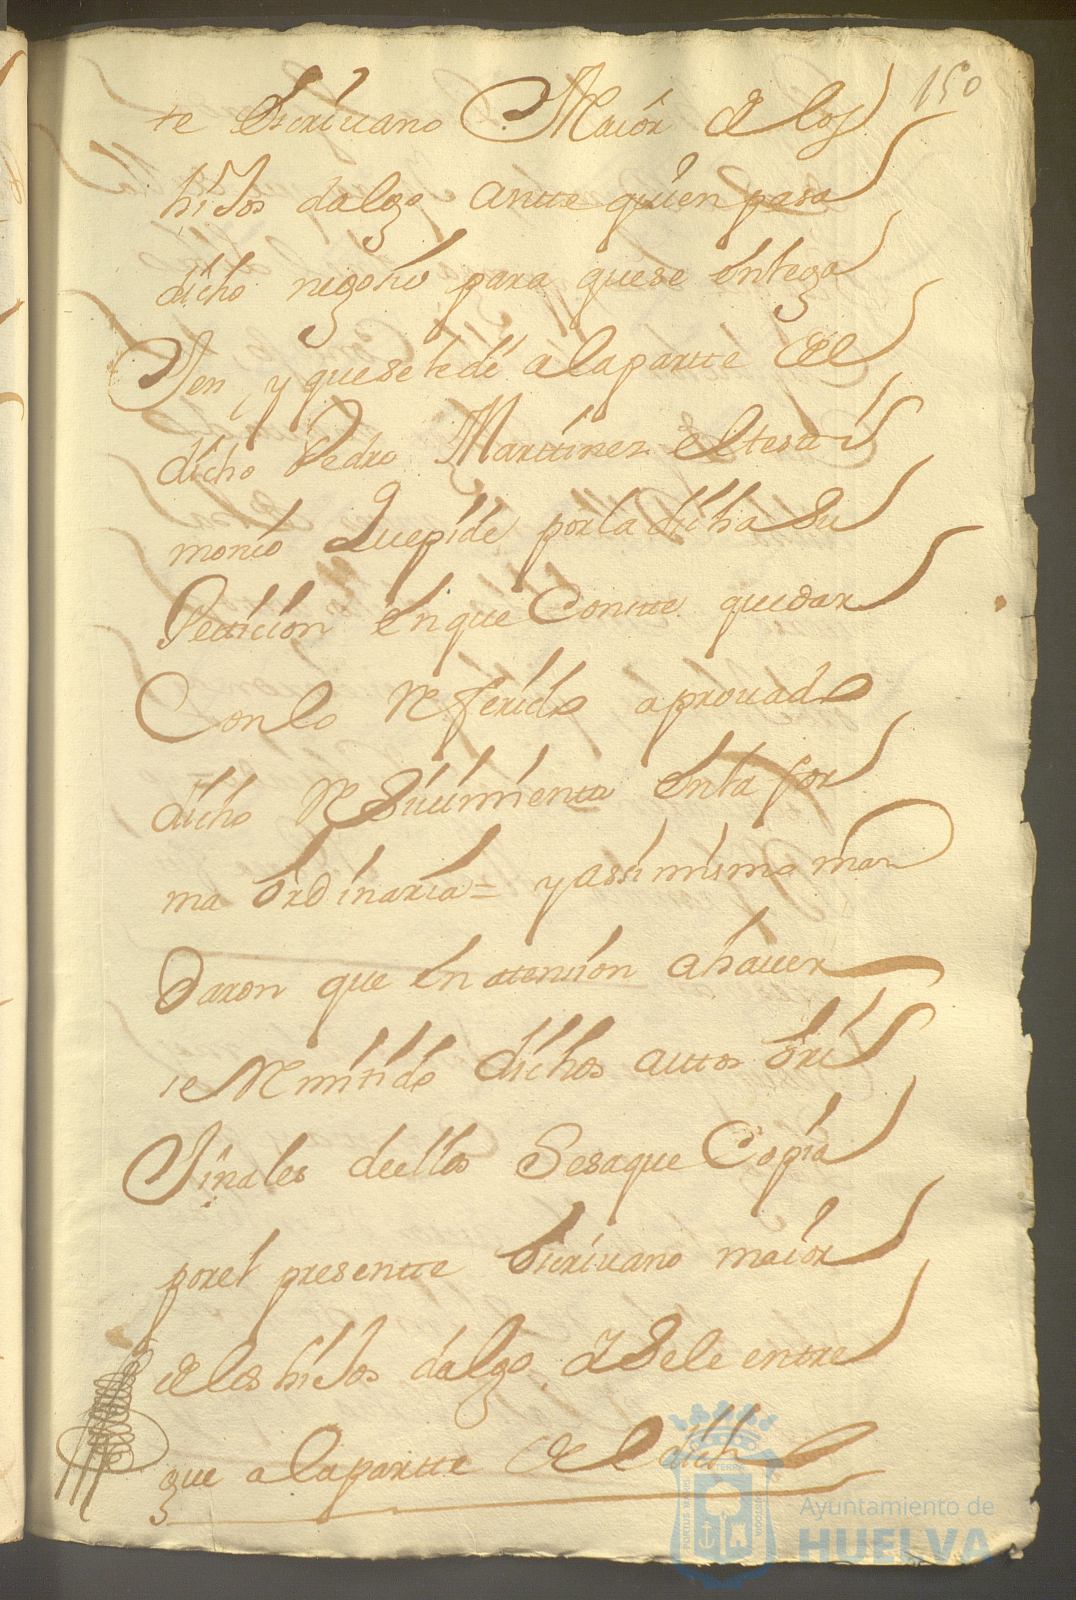 150
te escriuano Maior de los
hiJos dalgo antte quien pasa
dicho negosio para quese entega
Jen, y quesele dé alapartte del
dicho Pedro Marttinez el testi
monio Quepide porla dicha Su
Petticion en que Conste quedar
Con lo Referido aprouado
dicho Reseuimiento enla for
ma ordinaria= y assimismo man
daron que en atension ahauer
se Remitido dichos auttos ori
Jinales deellos Sesaque Copia
porel presentte escriuano maior
delos hiJos dalgo, y Sele entre
gue alapartte del dicho
Ayuntamiento de
HUELVA